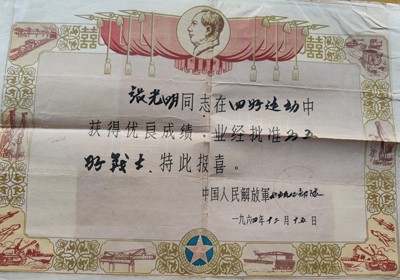 囍 囍
张光明同志在四好运动中
获得优良成绩，业经批准为五
好战士，特此报喜。
中国人民解放軍部队
一九六四年十二月十五日